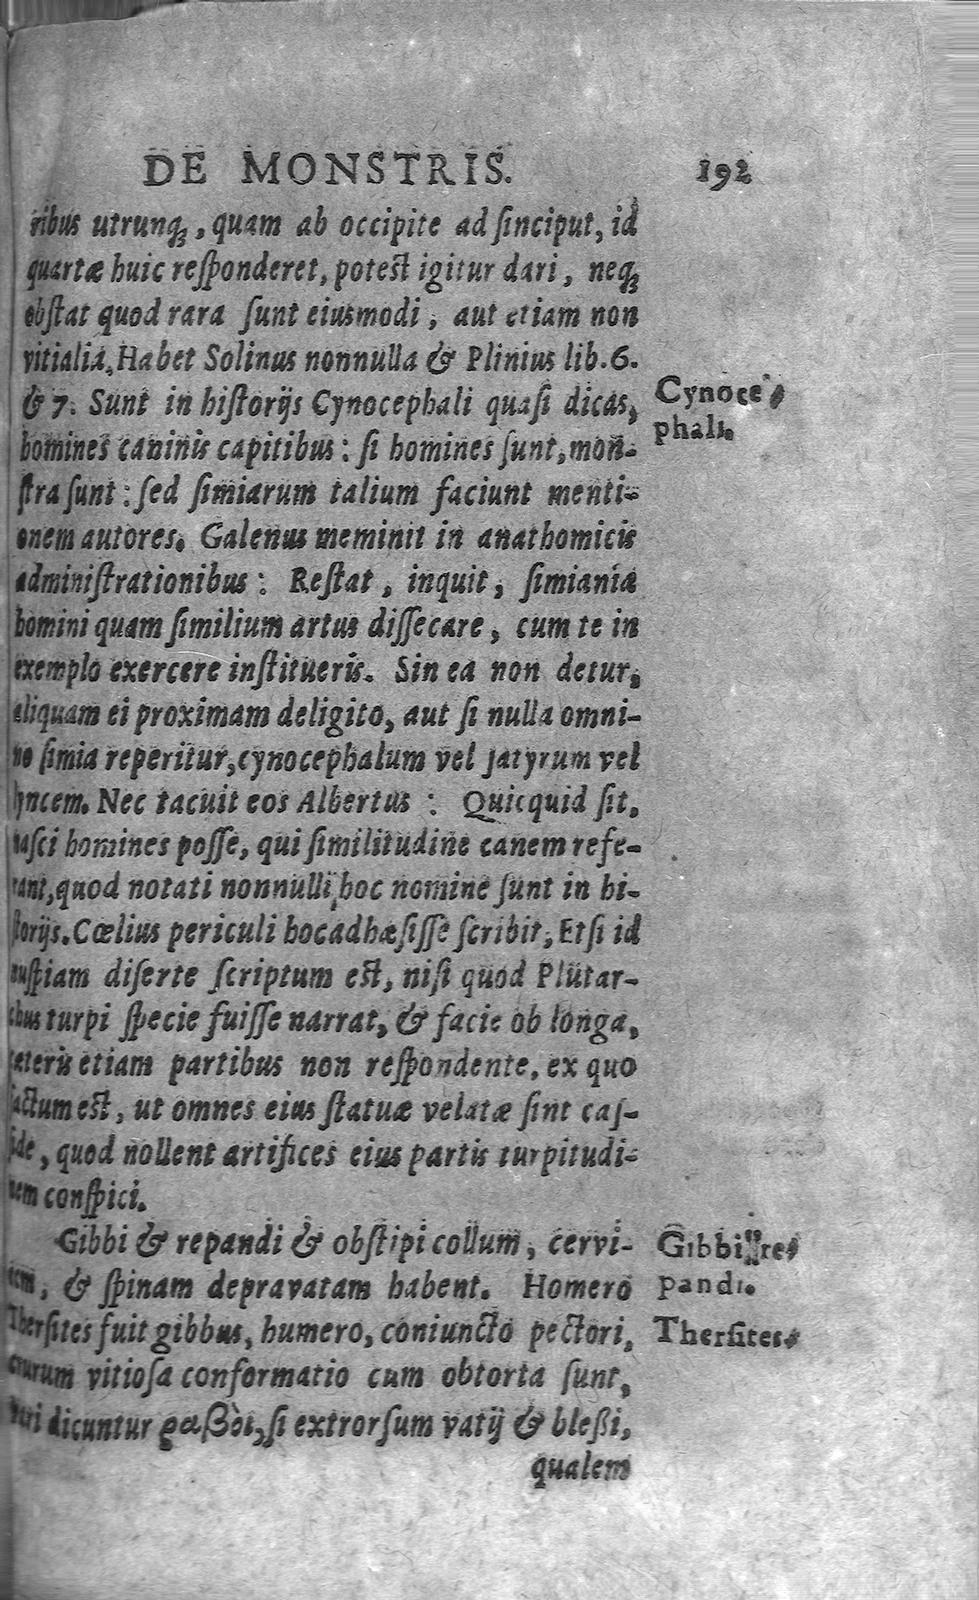 DE MONSTRIS. 192
ribus utrunq́ꝫ, quam ab occipite ad ſinciput, id
quartæ huic reſponderet, potest igitur dari, neqꝫ
obſtat quod rara ſunt eiusmodi, aut etiam non
vitialia. Habet Solinus nonnulla & Plinius lib. 6.
& 7. Sunt in hiſtorijs Cynocephali quaſi dicas,
Cynoce
phali.
homines caninis capitibus: ſi homines ſunt, mon-
ſtra ſunt: ſed ſimiarum talium faciunt menti-
onem autores. Galenus meminit in anathomicis
adminiſtrationibus: Reſtat, inquit, ſimiania
homini quam ſimilium artus diſſecare, cum te in
exemplo exercere inſtitueris. Sin ea non detur,
aliquam ei proximam deligito, aut ſi nulla omni-
no ſimia reperitur, cynocephalum vel ſatyrum vel
lyncem. Nec tacuit eos Albertus: Quicquid ſit,
naſci homines poſſe, qui ſimilitudine canem refe-
rant, quod notati nonnulli hoc nomine ſunt in hi-
ſtorijs. Cœlius periculi hocadhæſiſſe ſcribit, Etſi id
nuſpiam diſerte ſcriptum est, niſi quod Plutar-
chus turpi ſpecie fuiſſe narrat, & facie ob longa,
cæteris etiam partibus non reſpondente, ex quo
factum est, ut omnes eius ſtatuæ velatæ ſint caſ-
ſide, quod nollent artifices eius partis turpitudi-
nem conſpici.
Gibbi & repandi & obſtipi collum, cervi-
Gibbi re
pandi.
cem, & ſpinam depravatam habent. Homero
Therſites fuit gibbus, humero, coniuncto pectori,
Therſites
crurum vitioſa conformatio cum obtorta ſunt,
vari dicuntur ῥαβοὶ, ſi extrorſum vatij & bleßi,
qualem